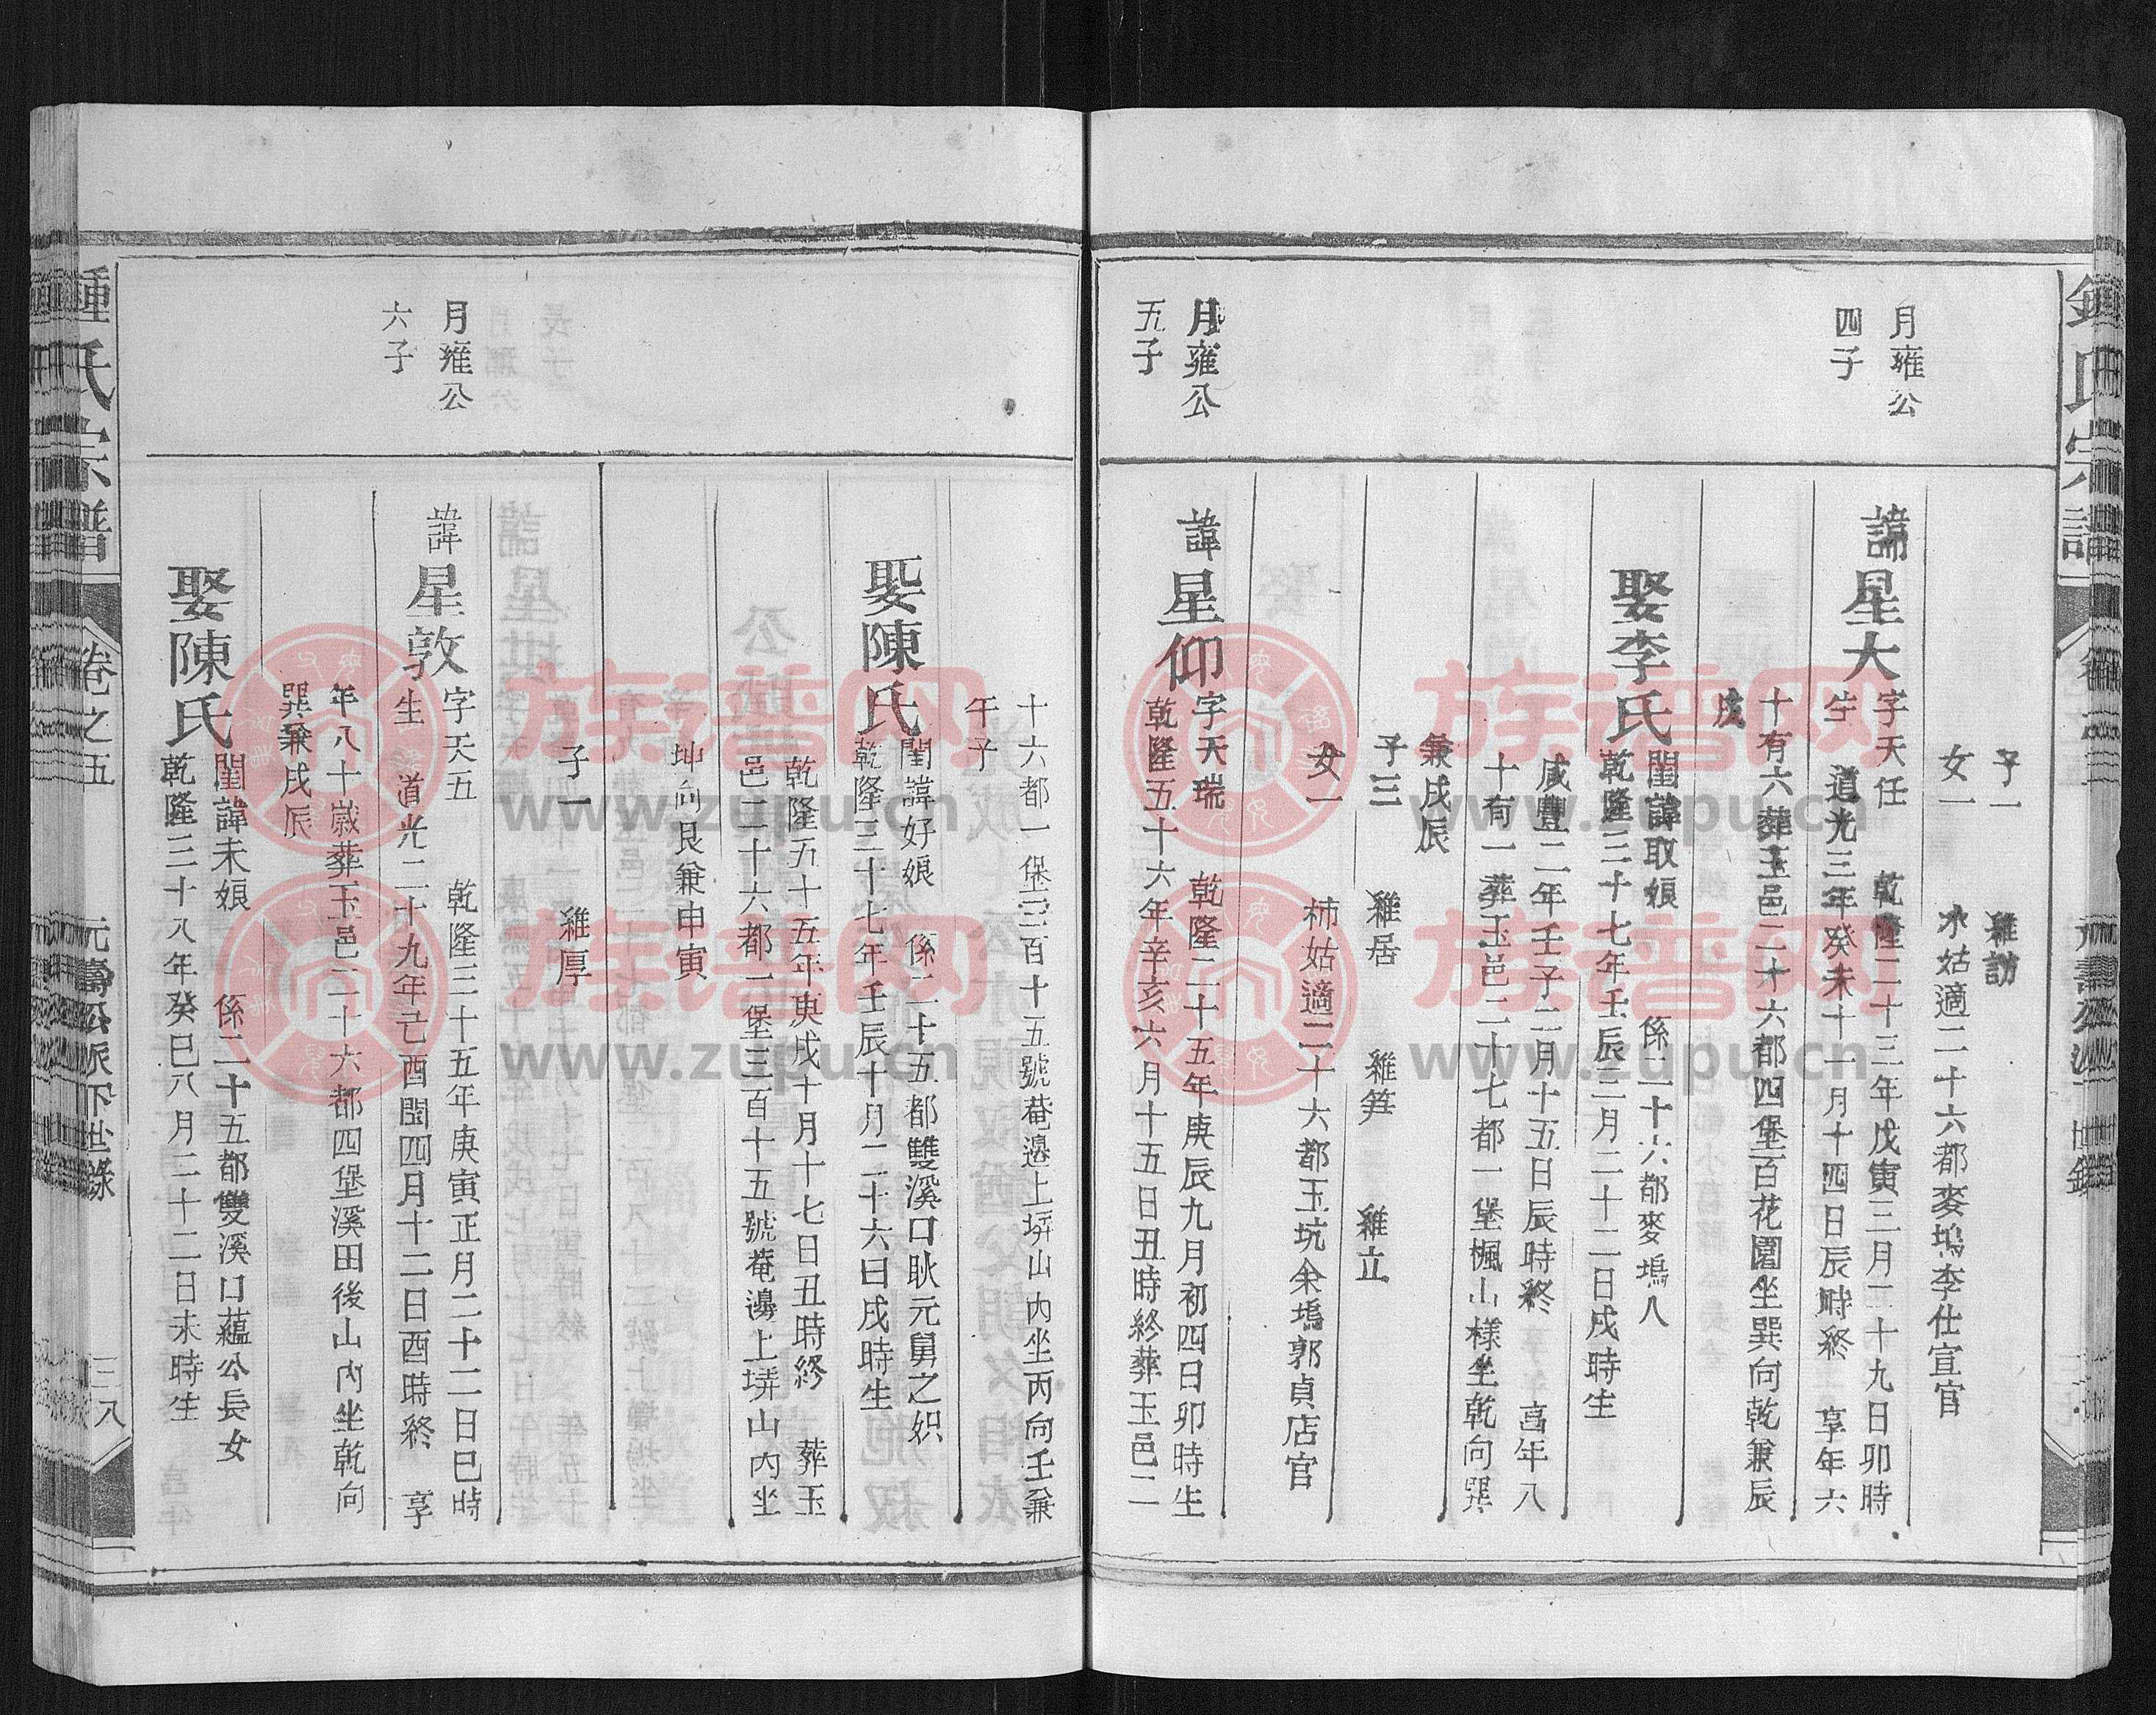 鍾氏宗譜
子一
雜訪
女一
氷姑適二十六都麥塢李仕宣官
月雍公
四子
諱星大
字天任
乾隆二十三年戊寅三月二十九日卯時
生
道光三年癸未十一月十四日辰時終
享年六
十有六葬玉邑二十六都四堡百花園坐巽向乾兼辰
戌
娶李氏
閨諱取娘
係二十六都麥塢人
乾隆三十七年壬辰三月二十二日戌時生
咸豐二年壬子二月十五日辰時終
高年八
十有一葬玉邑二十七都一堡楓山樣坐乾向巽
兼戌辰
子三
雜居
雜筭
雜立
女一
柿姑適二十六都玉坑余塢郭貞店官
月雍公
五子
諱星仰
字天瑞
乾隆二十五年庚辰九月初四日卯時生
乾隆五十六年辛亥六月十五日丑時終葬玉邑二
十六都一堡三百十五號菴邉上塝山內坐丙向壬兼
午子
娶陳氏
閨諱好娘
係二十五都雙溪口耿元舅之姐
乾隆三十七年壬辰十月二十六日戌時生
乾隆五十五年庚戌十月十七日丑時終
葬玉
邑二十六都一堡三百十五號菴邉上塝山內坐
坤向艮兼申寅
子一
雜厚
月雍公
六子
諱星敦
字天五
乾隆三十五年庚寅正月二十二日巳時
生
道光二十九年己酉閏四月十二日酉時終
享
年八十歲葬玉邑二十六都四堡溪田後山內坐乾向
巽兼戌辰
娶陳氏
閨諱未娘
係二十五都雙溪口蘊公長女
乾隆三十八年癸巳八月二十二日未時生
鍾氏宗譜
卷之五
元壽公派下世錄
三八
族谱网
www.zupu.cn
族谱网
www.zupu.cn
族谱网
www.zupu.cn
族谱网
www.zupu.cn